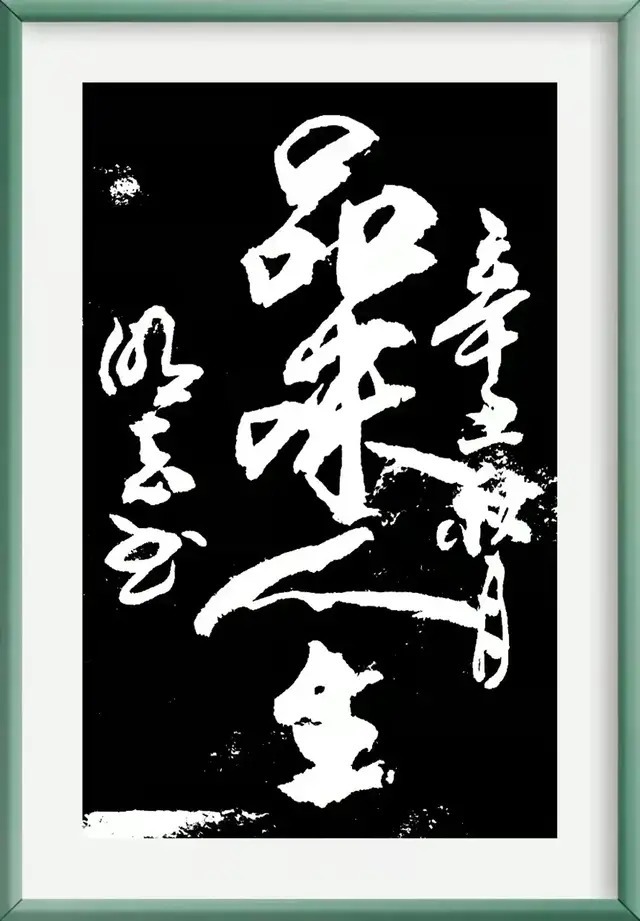 辛丑秋月
品味人生
明志书